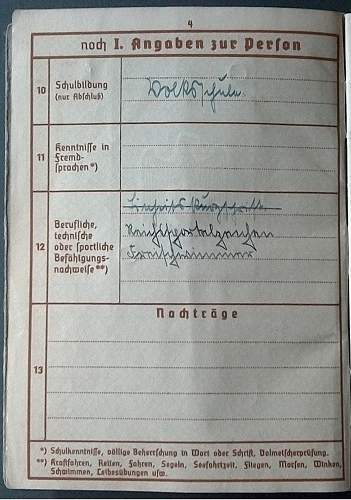 4
noch I. Angaben zur Person
10
Schulbildung
(nur Abschluß)
Volksschule
11
Kenntnisse in
Fremd-
sprachen*)
12
Berufliche,
technische
oder sportliche
Befähigungs-
nachweise**)
Einheitskurzschrift
Reichssportabzeichen
Freischwimmer
Nachträge
13
*) Schulkenntnisse, völlige Beherrschung in Wort oder Schrift, Dolmetscherprüfung.
**) Kraftfahren, Reiten, Fahren, Segeln, Seefahrtzeit, Fliegen, Morsen, Winken,
Schwimmen, Leibesübungen usw.